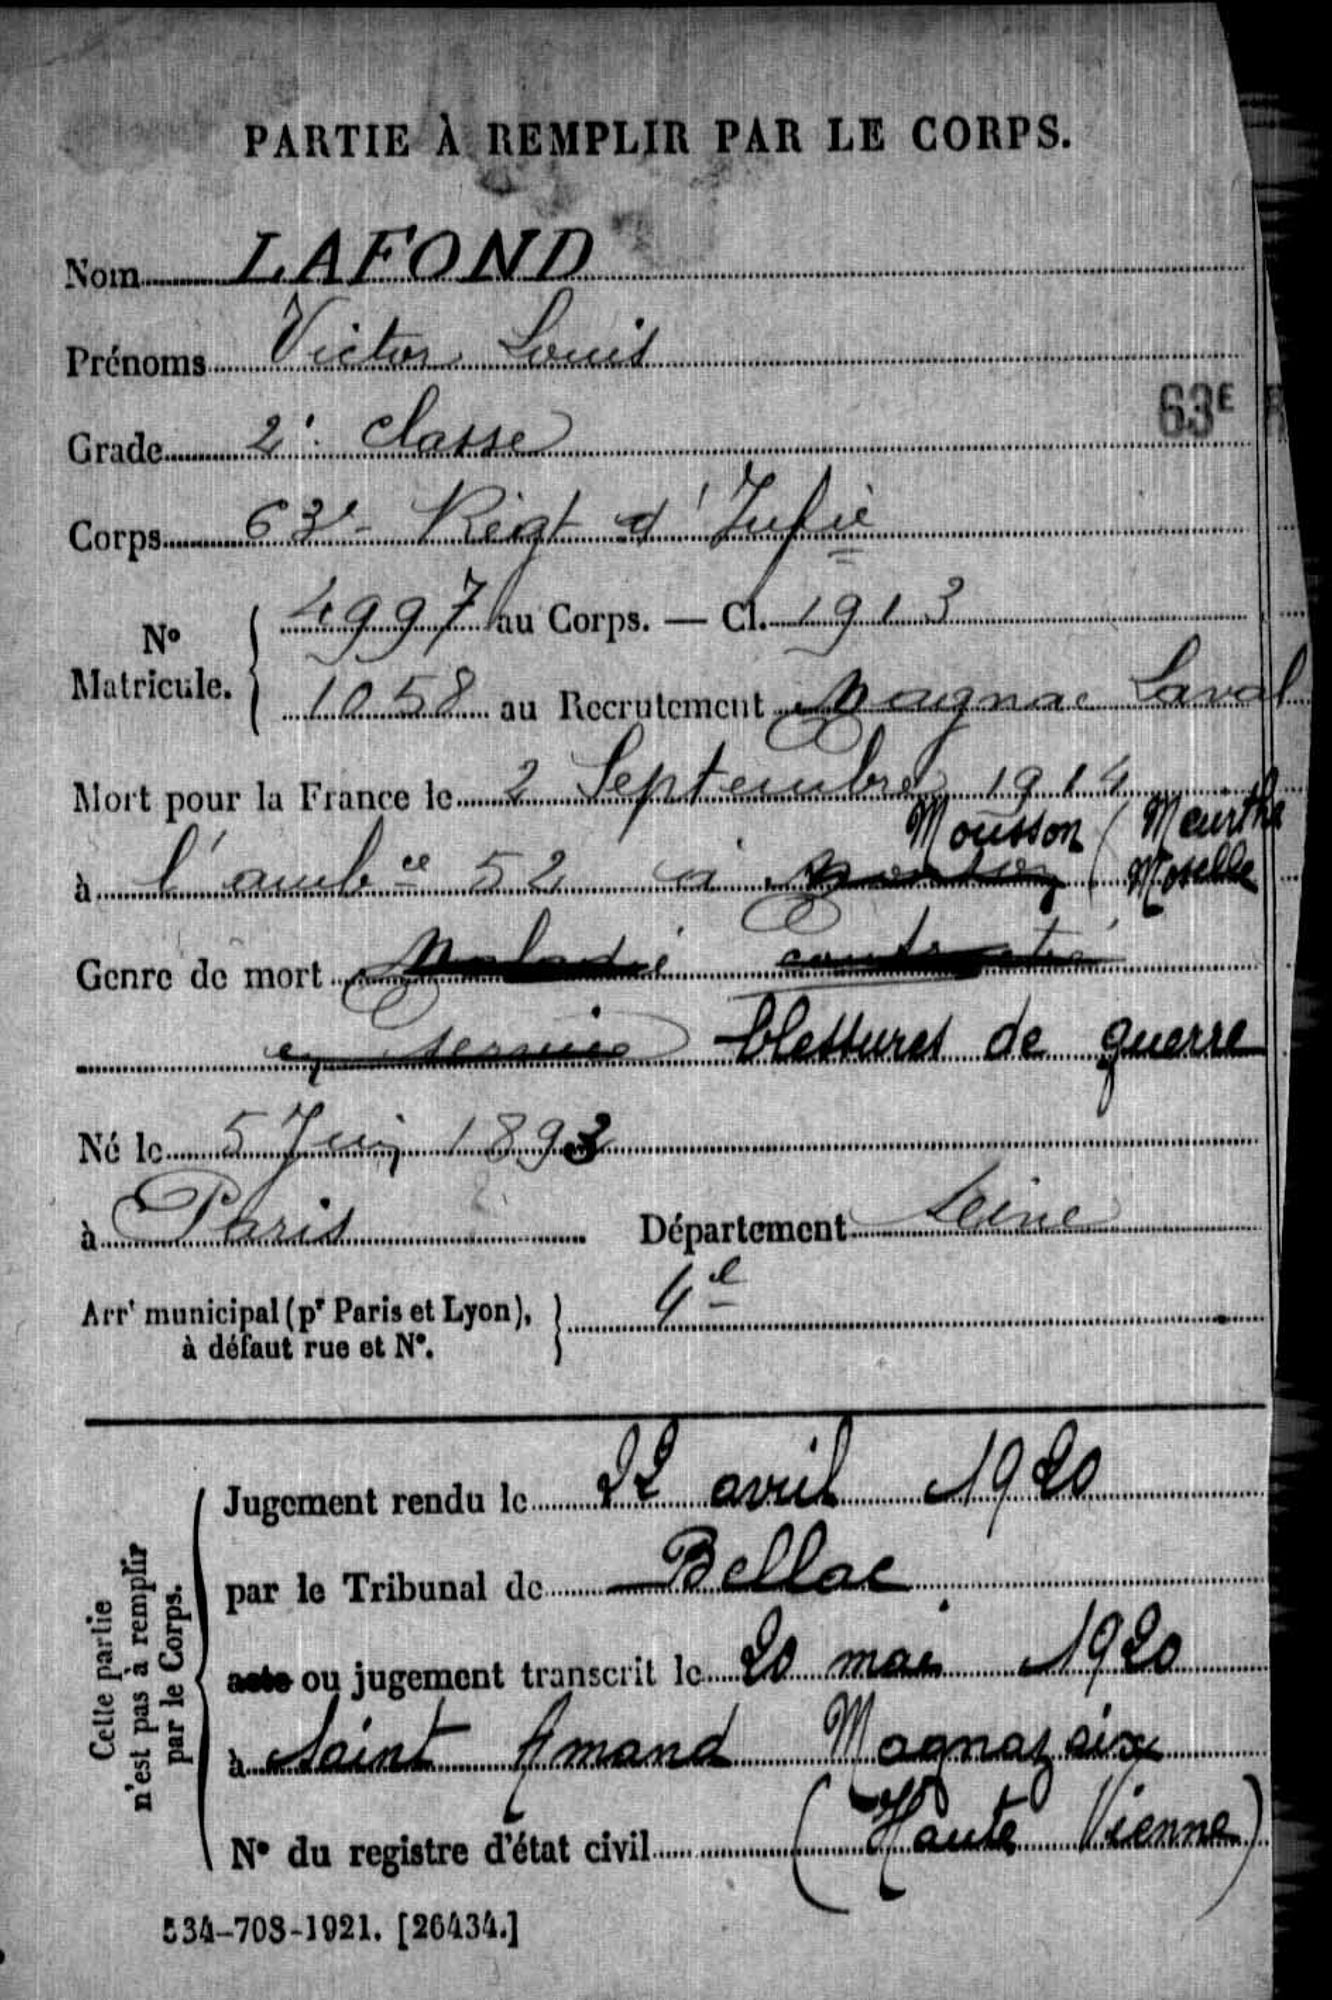 PARTIE À REMPLIR PAR LE CORPS.
Nom LAFOND
Prénoms Victor Louis
63E R
Grade 2e classe
Corps 63e Régt d'Infie
No Matricule. 4997 au Corps. — Cl. 1913
1058 au Recrutement Magnac Laval
Mort pour la France le 2 Septembre 1914
Mousson (Meurthe
à l'ambce 52 à Moselle
Genre de mort Maladie contractée
en service blessures de guerre
Né le 5 Juin 1893
à Paris Département Seine
Arrt municipal (pr Paris et Lyon), 4e
à défaut rue et No.
Jugement rendu le 22 avril 1920
par le Tribunal de Bellac
acte ou jugement transcrit le 20 mai 1920
à Saint Amand Magnazeix
No du registre d'état civil (Haute Vienne)
Celle partie
n'est pas à remplir
par le Corps.
534-708-1921. [26434.]